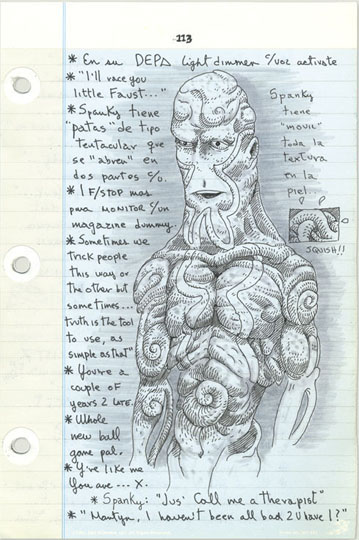 113
* En su DEPA light dimmer c/voz activate
* "I'll race you
little Faust..."
* Spanky tiene
"patas" de tipo
tentacular que
se "abren" en
dos partes c/u.
* 1 F/STOP mas
para MONITOR c/un
magazine dummy.
* Sometimes we
trick people
this way or
the other but
sometimes...
truth is the tool
to use, as
simple as that"
* You're a
couple of
years 2 late.
* Whole
new ball
game pal.
* Y're like me
You are --- X.
* Spanky: "Jus' Call me a therapist"
* "Martyn, I haven't been all bad 2 U have I?"
Spanky
tiene
"movil"
toda la
textura
en la
piel.
SQUISH!!